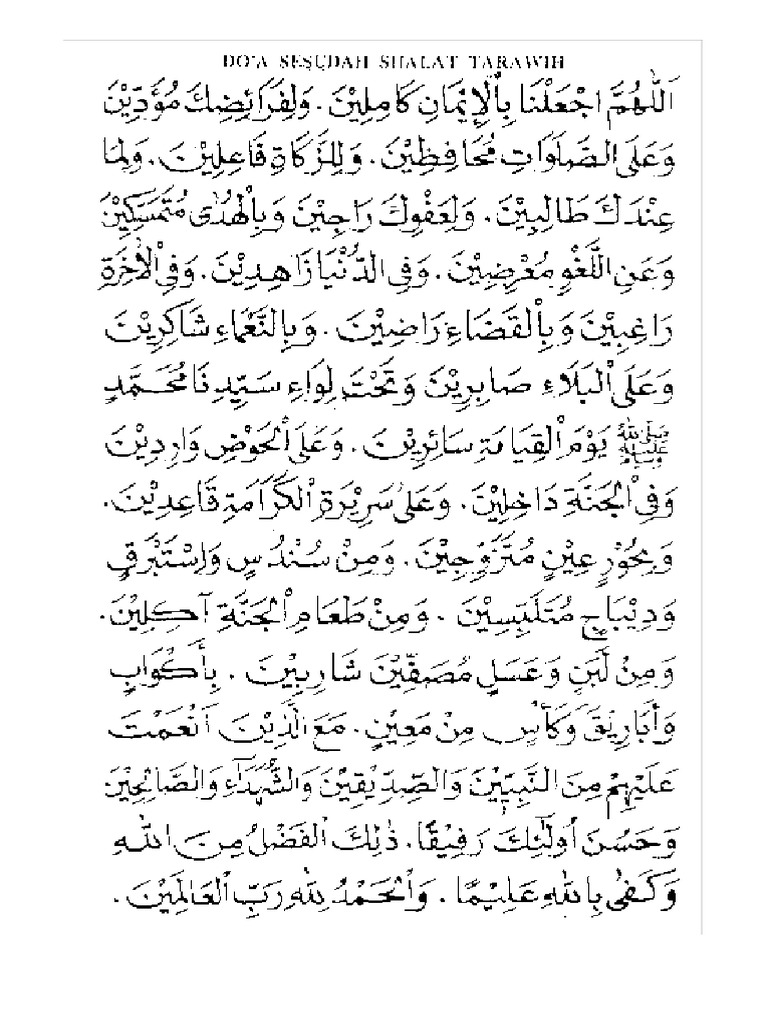 DO'A SESUDAH SHALAT TARAWIH
اَللّٰهُمَّ اجْعَلْنَا بِاْلإِيْمَانِ كَامِلِيْنَ. وَلِفَرَائِضِكَ مُؤَدِّيْنَ
وَعَلَى الصَّلَوَاتِ مُحَافِظِيْنَ. وَلِلزَّكَاةِ فَاعِلِيْنَ. وَلِمَا
عِنْدَكَ طَالِبِيْنَ. وَلِعَفْوِكَ رَاجِيْنَ وَبِاْلهُدٰى مُتَمَسِّكِيْنَ
وَعَنِ اللَّغْوِ مُعْرِضِيْنَ. وَفِى الدُّنْيَا زَاهِدِيْنَ. وَفِى اْلاٰخِرَةِ
رَاغِبِيْنَ وَبِاْلقَضَاءِ رَاضِيْنَ. وَبِالنَّعْمَاءِ شَاكِرِيْنَ
وَعَلَى اْلبَلَاءِ صَابِرِيْنَ وَتَحْتَ لِوَاءِ سَيِّدِنَا مُحَمَّدٍ
صَلَّى اللهُ عَلَيْهِ وَسَلَّمَ يَوْمَ اْلقِيَامَةِ سَائِرِيْنَ. وَعَلَى اْلحَوْضِ وَارِدِيْنَ
وَفِى اْلجَنَّةِ دَاخِلِيْنَ. وَعَلٰى سَرِيْرَةِ اْلكَرَامَةِ قَاعِدِيْنَ.
وَبِحُوْرٍ عِيْنٍ مُتَزَوِّجِيْنَ. وَمِنْ سُنْدُسٍ وَاِسْتَبْرَقٍ
وَدِيْبَاجٍ مُتَلَبِّسِيْنَ. وَمِنْ طَعَامِ اْلجَنَّةِ آكِلِيْنَ.
وَمِنْ لَبَنٍ وَعَسَلٍ مُصَفَّيْنَ شَارِبِيْنَ. بِأَكْوَابٍ
وَأَبَارِيْقَ وَكَأْسٍ مِنْ مَعِيْنٍ. مَعَ الَّذِيْنَ اَنْعَمْتَ
عَلَيْهِمْ مِنَ النَّبِيِّيْنَ وَالصِّدِّيْقِيْنَ وَالشُّهَدَاءِ وَالصَّالِحِيْنَ
وَحَسُنَ اُولٰئِكَ رَفِيْقًا. ذٰلِكَ اْلفَضْلُ مِنَ اللهِ
وَكَفٰى بِاللهِ عَلِيْمًا. وَاْلحَمْدُ لِلّٰهِ رَبِّ اْلعَالَمِيْنَ.